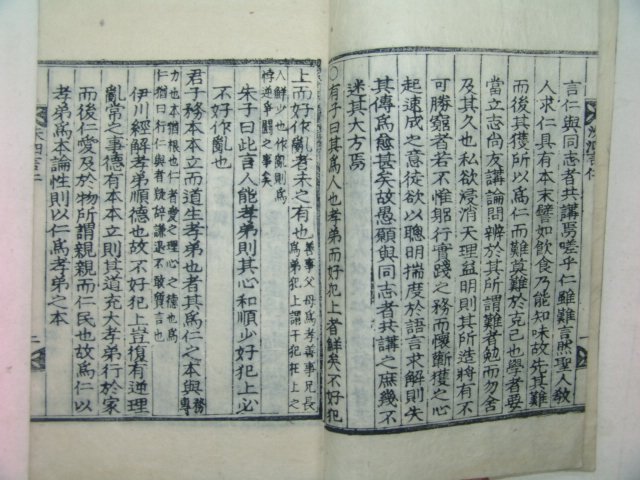 言仁與同志者共講焉嗟乎仁雖難言然聖人敎
人求仁具有本末譬如飮食乃能知味故先其難
而後其獲所以爲仁而難莫難於克己也學者要
當立志尚友講論問辨於其所謂難者勉而勿舍
及其久也私欲浸消天理益明則其所造將有不
可勝窮者若不惟躬行實踐之務而懷蘄獲之心
起速成之意徒欲以聰明揣度於語言求解則失
其傳爲愈甚矣故愚願與同志者共講之庶幾不
迷其大方焉
○有子曰其爲人也孝弟而好犯上者鮮矣不好犯
上而好作亂者未之有也 善事父母爲孝善事兄長
爲弟犯上謂干犯在上之
人鮮少也作亂則爲
悖逆爭鬪之事矣
朱子曰此言人能孝弟則其心和順少好犯上必
不好作亂也
君子務本本立而道生孝弟也者其爲仁之本與 務專
力也本猶根也仁者愛之理心之德也爲
仁猶曰行仁與者疑辭謙退不敢質言也
伊川經解孝弟順德也故不好犯上豈復有逆理
亂常之事德有本本立則其道充大孝弟行於家
而後仁愛及於物所謂親親而仁民也故爲仁以
孝弟爲本論性則以仁爲孝弟之本
洙泗言仁
一
洙泗言仁
二